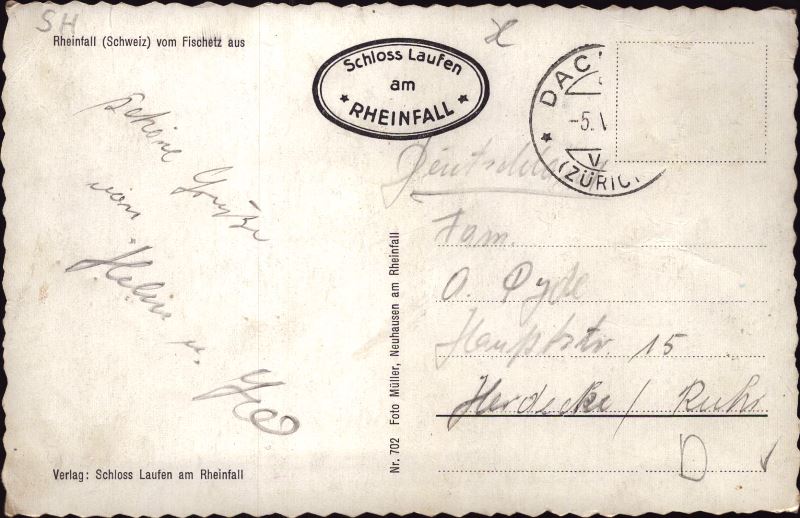 SH
Rheinfall (Schweiz) vom Fischetz aus
Schloss Laufen
am
★ RHEINFALL ★
DAC
-5.
V
(ZÜRICH
schöne Grüße
von
u.
Deutschland
Fam.
O. Pyde
Hauptstr. 15
Herdecke / Ruhr
D
Nr. 702 Foto Müller, Neuhausen am Rheinfall
Verlag: Schloss Laufen am Rheinfall